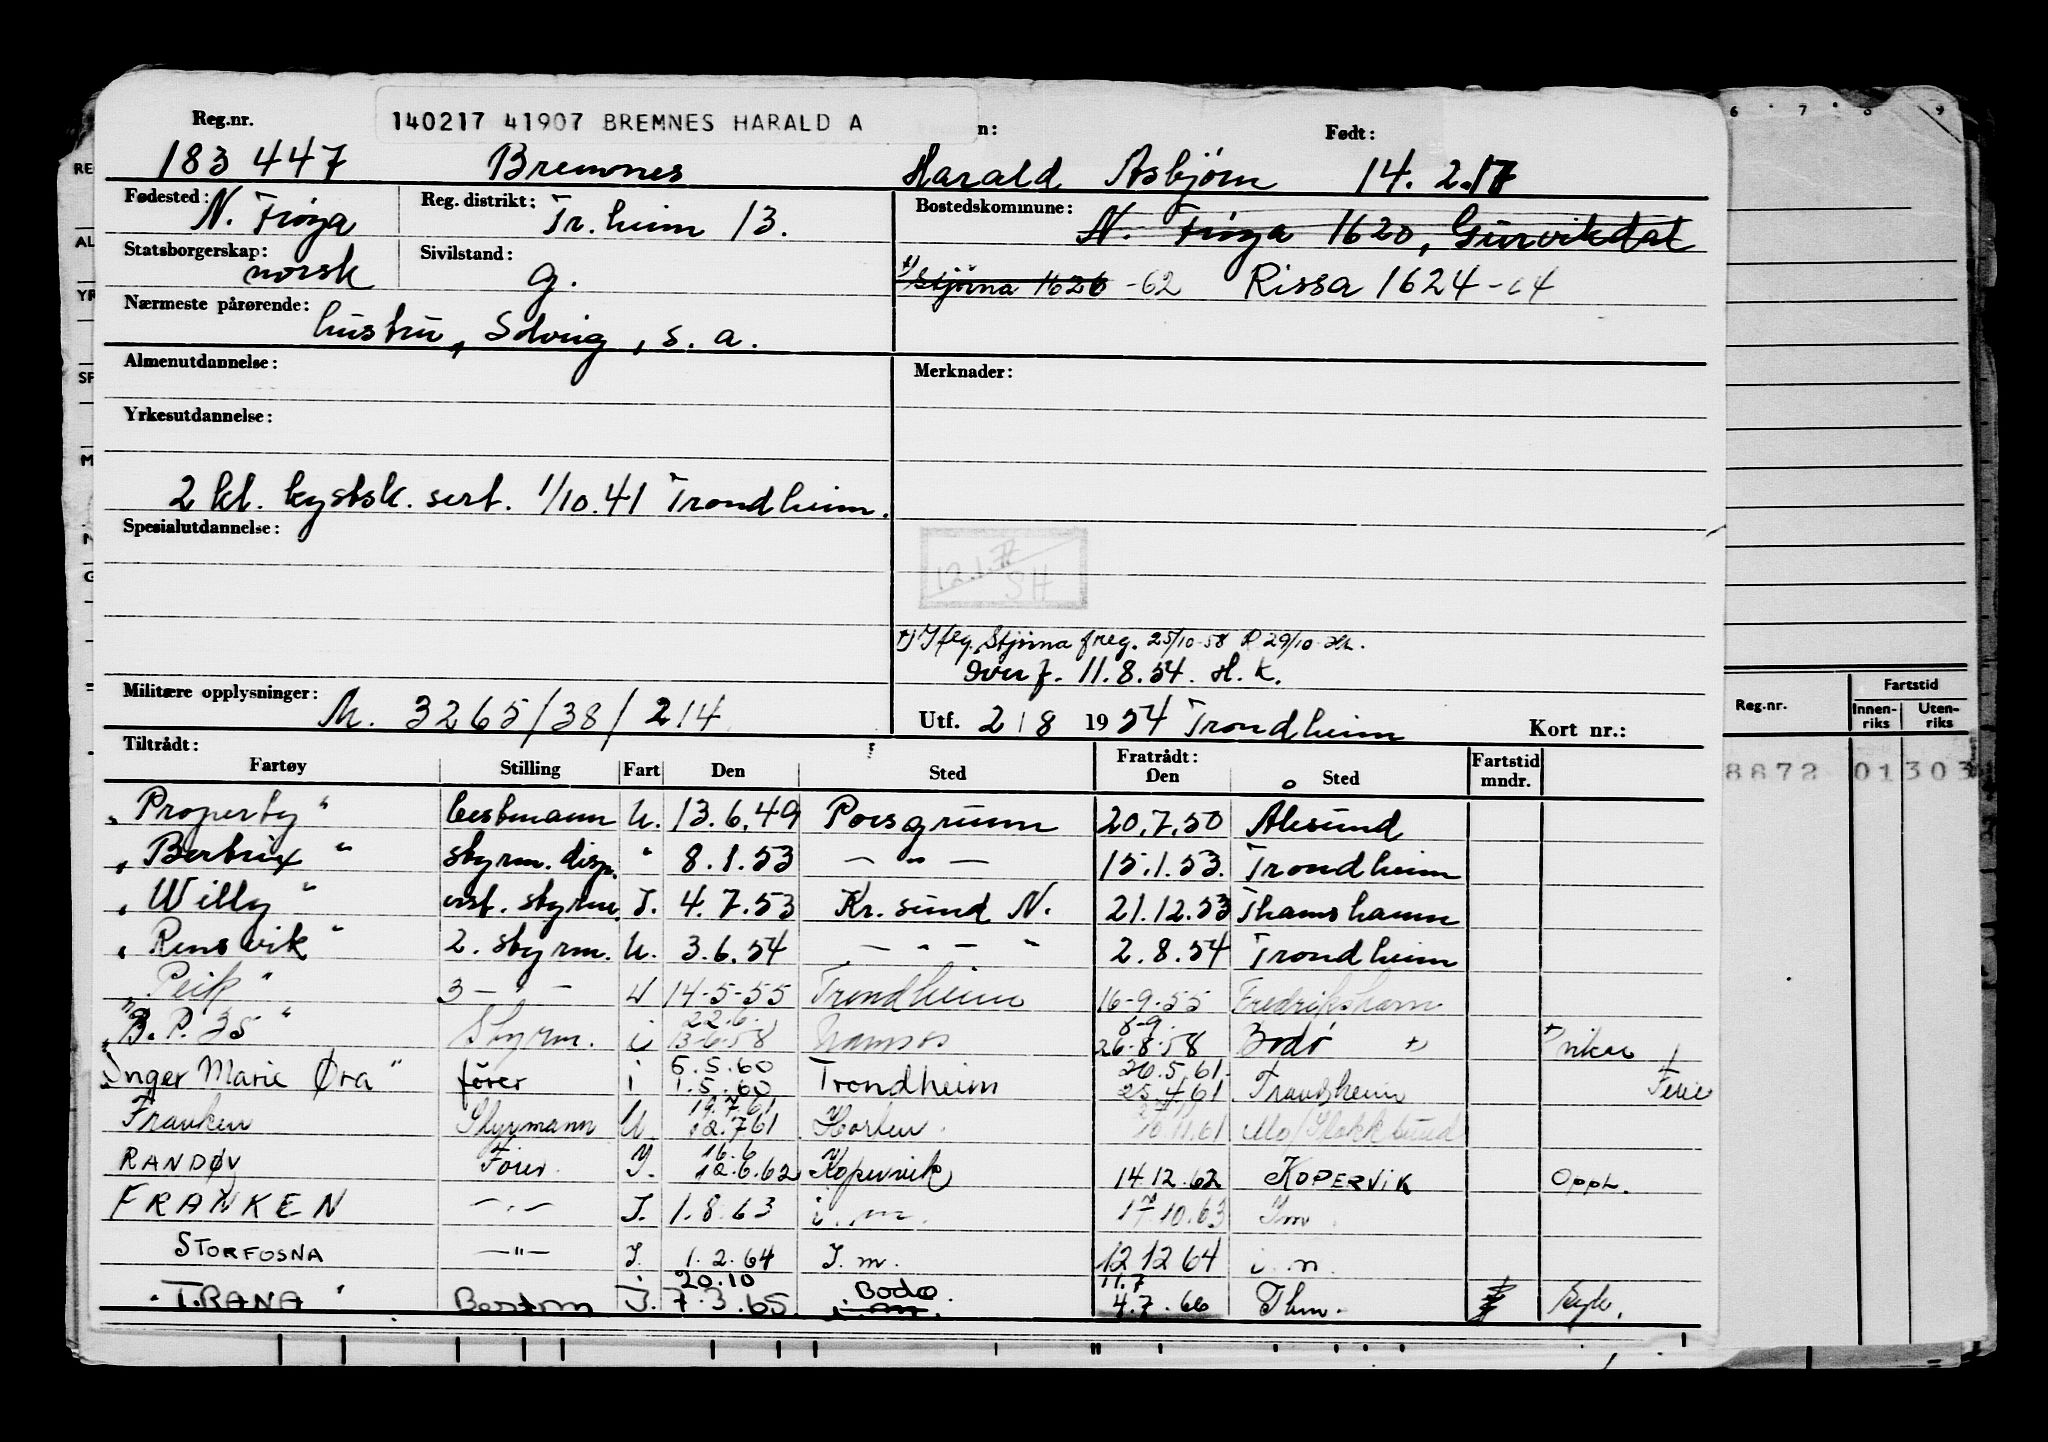 Reg.nr. 140217 41907 BREMNES HARALD A n: Født:
183 447 Bremnes Harald Asbjørn 14. 2.17
Fødested: N. Frøya Reg. distrikt: Tr.heim 13. Bostedskommune: N. Frøya 1620, Gurvikdal
Statsborgerskap: norsk Sivilstand: g. x) Stjørna 1626 -62 Rissa 1624-64
Nærmeste pårørende: hustru, Solveig, s. a.
Almenutdannelse: Merknader:
Yrkesutdannelse:
2 kl. kystsk. sert. 1/10.41 Trondheim.
Spesialutdannelse:
12.1.72 SH
x) Iflg. Stjørna freg. 25/10-58 R 29/10
Overf. 11.8.54. H.K.
Militære opplysninger: M. 3265/38/214 Utf. 2/8 1954 Trondheim Kort nr.:
Tiltrådt: Fratrådt: Fartstid
Fartøy Stilling Fart Den Sted Den Sted mndr.
"Property" bestmann U. 13.6.49 Porsgrunn 20.7.50 Ålesund
"Bertrix" styrm. disp. " 8.1.53 — " — 15.1.53. Trondheim
"Willy" est. styrm. I. 4.7.53 Kr.sund N. 21.12.53 Thamshamn
"Rensvik" 2. styrm. U. 3.6.54 — " — " 2.8.54 Trondheim
"Peik" 3 — " — U 14-5-55 Trondheim 16-9-55 Fredrikshamn
22.6. 8-9.
"B.P. 35" Styrm. i 13-6-58 Namsos 26-8-58 Bodø +)
5.5.60 26.5.61.
"Inger Marie Øra" fører i 1.5.60 Trondheim 25.4.61 Trondheim Ferie
19.7.61
Franken Styrmann U 12.7.61 Horten 10.11.61 Mo/Stokksund
16.6
RANDØY Fører I. 12.6.62 Kopervik 14.12.62 KOPERVIK OPPL.
FRANKEN — " — I. 1.8.63 i.m. 17.10.63 I m.
STORFOSNA — " — I. 1.2.64 I.m. 12 12 64 i.m.
20.10 Bodø 11.7
"TRANA" Bestm I. 7.3.65. i.m. 4.7.66 Thm. Syk.
Reg.nr. Fartstid
Innenriks Utenriks
8672 01 303